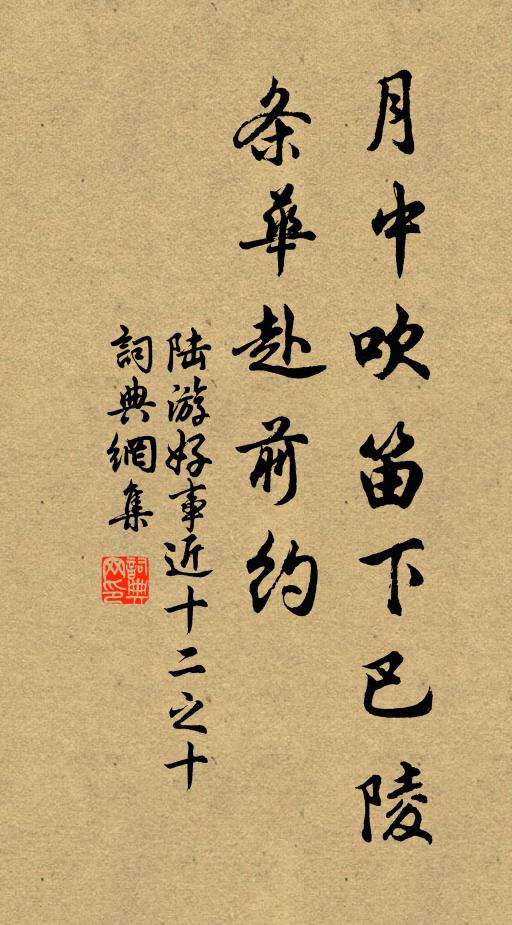 月中吹笛下巴陵
条華赴前約
陆游好事近十二之十
詞典網集
詞典網印